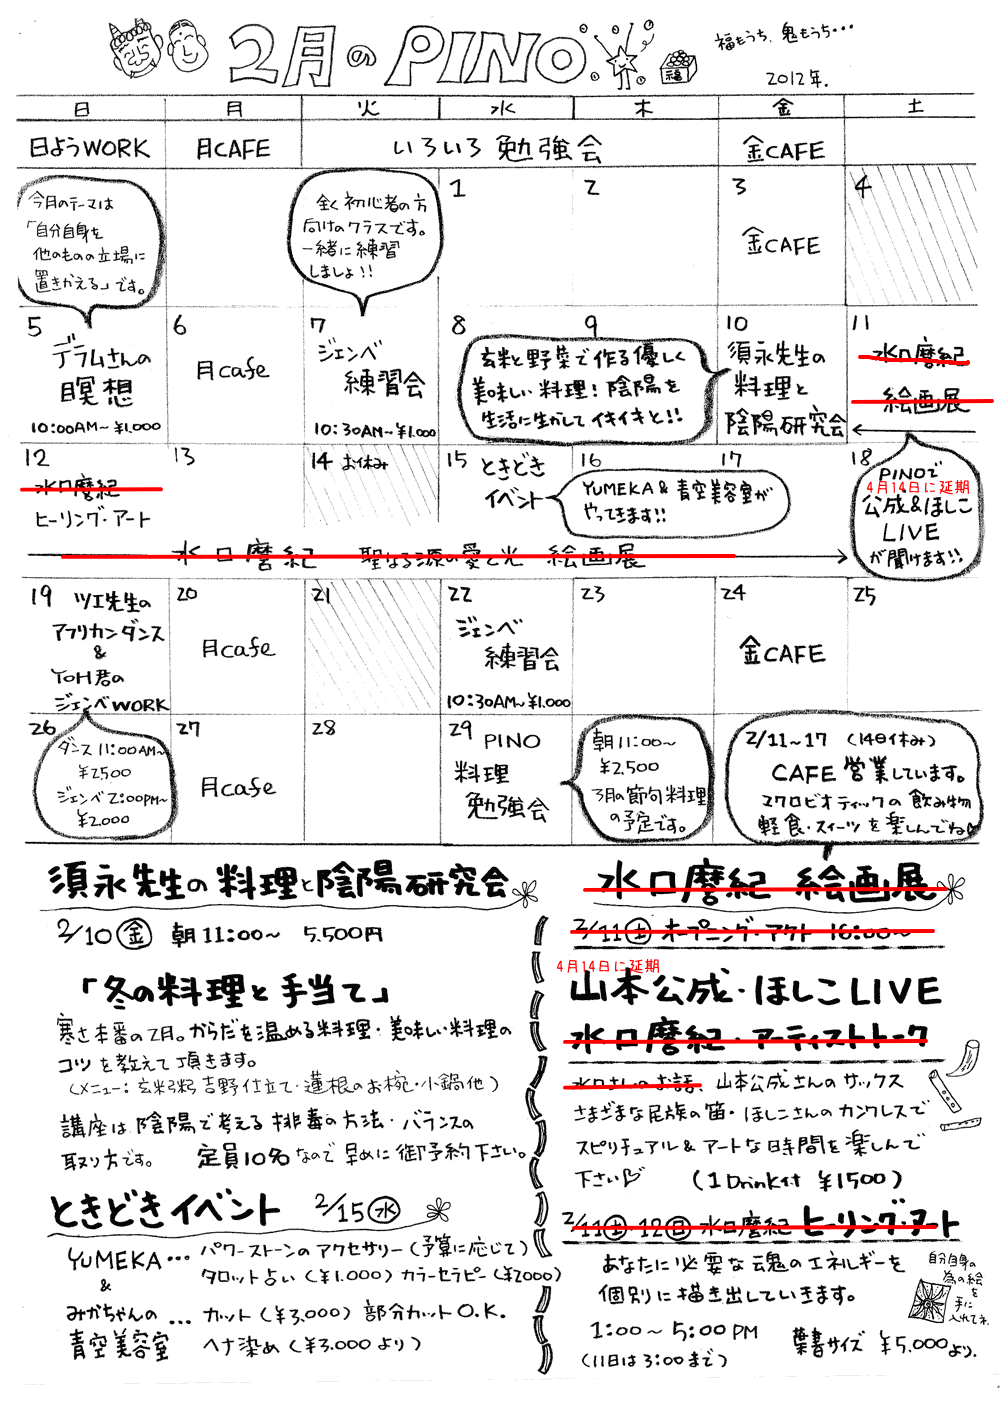 2月のPINO
福もうち、鬼もうち・・・
福
2012年.
日 月 火 水 木 金 土
日ようWORK 月CAFE いろいろ勉強会 金CAFE
今月のテーマは
「自分自身を
他のものの立場に
置きかえる」です。
全く初心者の方
向けのクラスです。
一緒に練習
しましょ!!
1 2 3 4
金CAFE
5 6 7 8 9 10 11
デラムさんの
瞑想
10:00AM~ ¥1.000
月cafe
ジェンベ
練習会
10:30AM~ ¥1.000
玄米と野菜で作る優しく
美味しい料理!陰陽を
生活に生かしてイキイキと!!
須永先生の
料理と
陰陽研究会
水口磨紀
絵画展
12 13 14 お休み 15 16 17 18
水口磨紀
ヒーリング・アート
ときどき
イベント
YUMEKA & 青空美容室が
やってきます!!
PINOで
4月14日に延期
公成&ほしこ
LIVE
が聞けます!!
水口磨紀 聖なる源の愛と光 絵画展
19 20 21 22 23 24 25
ツエ先生の
アフリカンダンス
&
YOH君の
ジェンベWORK
月cafe
ジェンベ
練習会
10:30AM~ ¥1.000
金CAFE
26 27 28 29
ダンス 11:00AM~
¥2500
ジェンベ 2:00PM~
¥2.000
月cafe
PINO
料理
勉強会
朝11:00~
¥2.500
3月の節句料理
の予定です。
2/11~17 (14日休み)
CAFE 営業しています。
マクロビオティックの飲み物
軽食・スイーツを楽しんでね
須永先生の料理と陰陽研究会
2/10(金) 朝11:00~ 5.500円
「冬の料理と手当て」
寒さ本番の2月。からだを温める料理・美味しい料理の
コツを教えて頂きます。
(メニュー:玄米3粉吉野仕立て・蓮根のお椀・小鍋他)
講座は陰陽で考える排毒の方法・バランスの
取り方です。 定員10名なので早めに御予約下さい。
ときどきイベント 2/15(水)
YUMEKA・・・パワーストーンのアクセサリー(予算に応じて)
& タロット占い(¥1.000) カラーセラピー(¥2000)
みかちゃんの ・・・ カット(¥3,000) 部分カットO.K.
青空美容室 ヘナ染め(¥3.000より)
水口磨紀 絵画展
2/11(土) オープニング・アクト 16:00~
4月14日に延期
山本公成・ほしこLIVE
水口磨紀・アーティストトーク
水口さんのお話、山本公成さんのサックス
さまざまな民族の笛・ほしこさんのカンクレスで
スピリチュアル&アートな時間を楽しんで
下さい (1Drink付 ¥1500)
2/11(土)・12(日) 水口磨紀 ヒーリング・アート
あなたに必要な魂のエネルギーを
個別に描き出していきます。
自分自身の
為の絵
を
手に
入れてネ.
1:00~5:00PM
(11日は3:00まで)
葉書サイズ ¥5.000より.